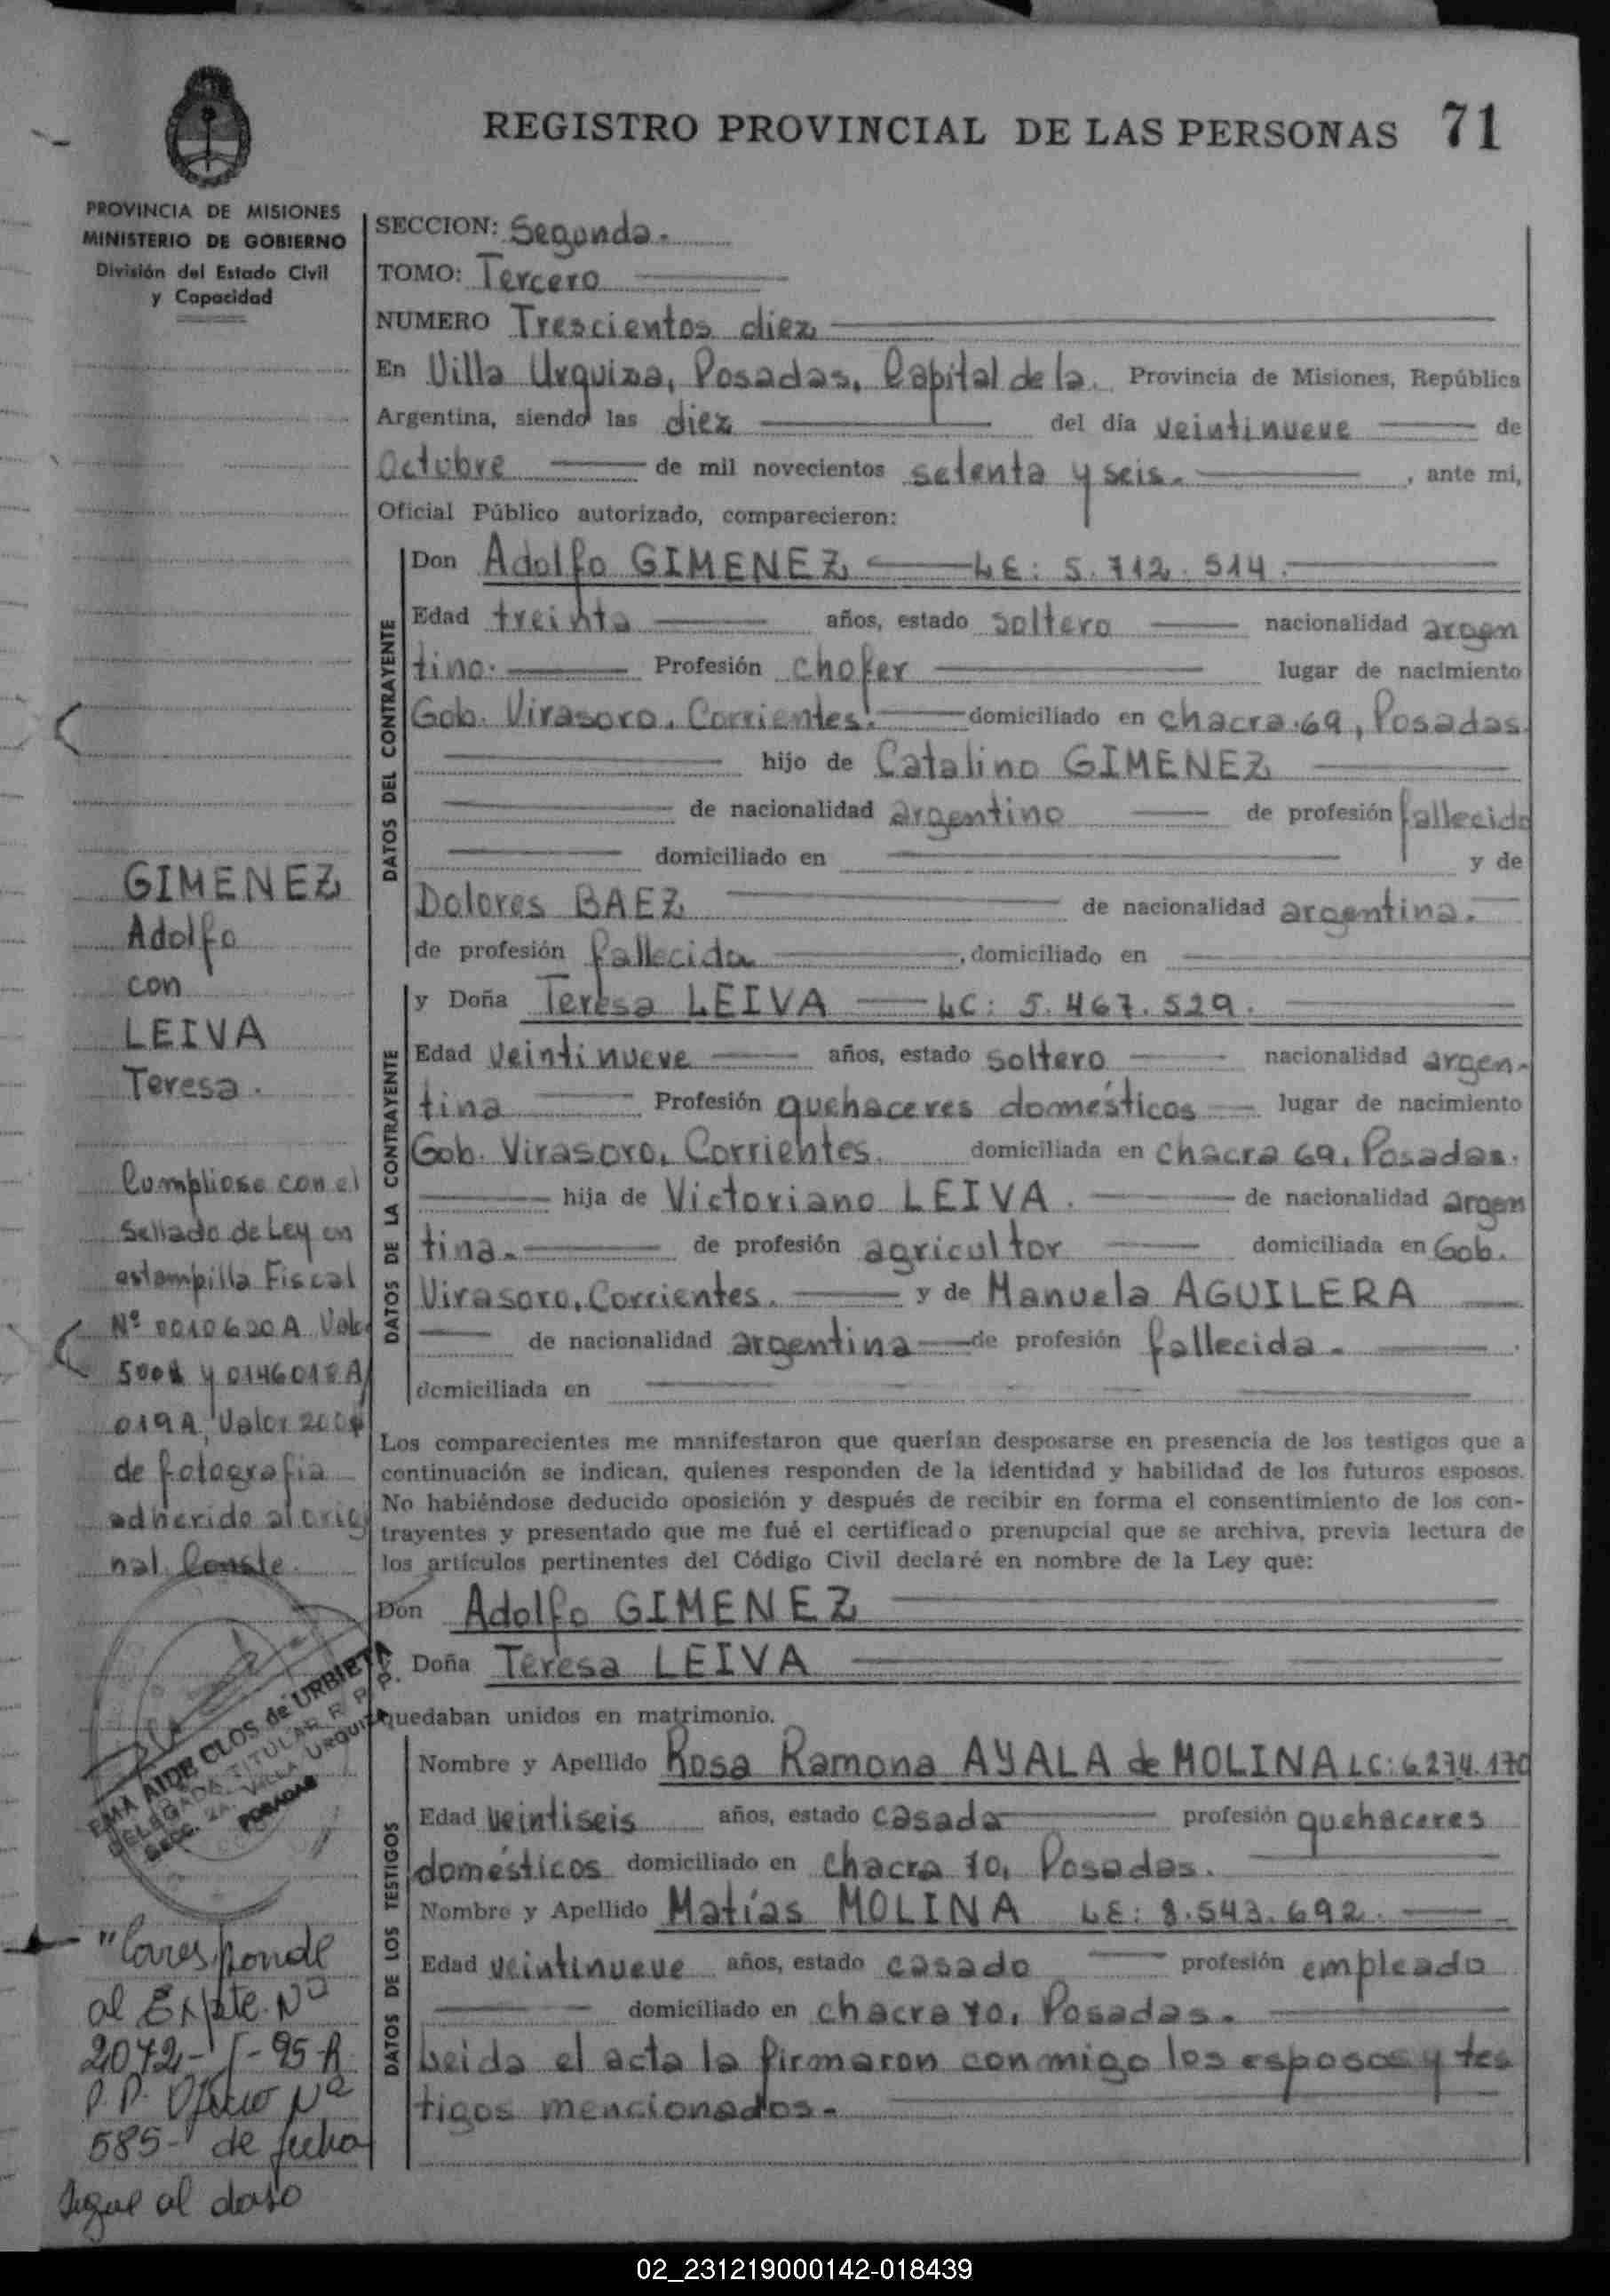 REGISTRO PROVINCIAL DE LAS PERSONAS 71
PROVINCIA DE MISIONES
MINISTERIO DE GOBIERNO
División del Estado Civil
y Capacidad
SECCION: Segunda.
TOMO: Tercero
NUMERO Trescientos diez
En Villa Urquiza, Posadas, Capital de la. Provincia de Misiones, República
Argentina, siendo las diez del día veintinueve de
Octubre de mil novecientos setenta y seis. , ante mi,
Oficial Público autorizado, comparecieron:
DATOS DEL CONTRAYENTE
Don Adolfo GIMENEZ LE: 5.712.514.
Edad treinta años, estado soltero nacionalidad argen
tino. Profesión chofer lugar de nacimiento
Gob. Virasoro, Corrientes. domiciliado en chacra 69, Posadas.
hijo de Catalino GIMENEZ
de nacionalidad argentino de profesión fallecido
domiciliado en y de
Dolores BAEZ de nacionalidad argentina.
de profesión fallecida , domiciliado en
DATOS DE LA CONTRAYENTE
y Doña Teresa LEIVA LC: 5.467.529.
Edad veintinueve años, estado soltero nacionalidad argen-
tina Profesión quehaceres domésticos lugar de nacimiento
Gob. Virasoro, Corrientes. domiciliada en chacra 69, Posadas.
hija de Victoriano LEIVA. de nacionalidad argen
tina. de profesión agricultor domiciliada en Gob.
Virasoro, Corrientes. y de Manuela AGUILERA
de nacionalidad argentina de profesión fallecida.
domiciliada en
Los comparecientes me manifestaron que querían desposarse en presencia de los testigos que a
continuación se indican, quienes responden de la identidad y habilidad de los futuros esposos.
No habiéndose deducido oposición y después de recibir en forma el consentimiento de los con-
trayentes y presentado que me fué el certificado prenupcial que se archiva, previa lectura de
los artículos pertinentes del Código Civil declaré en nombre de la Ley que:
Don Adolfo GIMENEZ
Doña Teresa LEIVA
quedaban unidos en matrimonio.
DATOS DE LOS TESTIGOS
Nombre y Apellido Rosa Ramona AYALA de MOLINA LC: 6.274.170
Edad veintiseis años, estado casada profesión quehaceres
domésticos domiciliado en chacra 70, Posadas.
Nombre y Apellido Matías MOLINA LE: 8.543.692.
Edad veintinueve años, estado casado profesión empleado
domiciliado en chacra 70, Posadas.
Leida el acta la firmaron conmigo los esposos y tes
tigos mencionados.
GIMENEZ
Adolfo
con
LEIVA
Teresa.
Cumpliose con el
sellado de Ley en
estampilla Fiscal
Nº 0010620A Valor
500$ y 0146018A/
019A, Valor 200$
de fotografia
adherido al origi
nal. Conste.
EMA AIDE CLOS de URBIETA
DELEGADA TITULAR R. P. P.
SECC. 2A. VILLA URQUIZA
POSADAS
"Corresponde
al Expte. Nº
2072- -95-R.
P.P. Oficio Nº
585- de fecha
Sigue al dorso
02_231219000142-018439